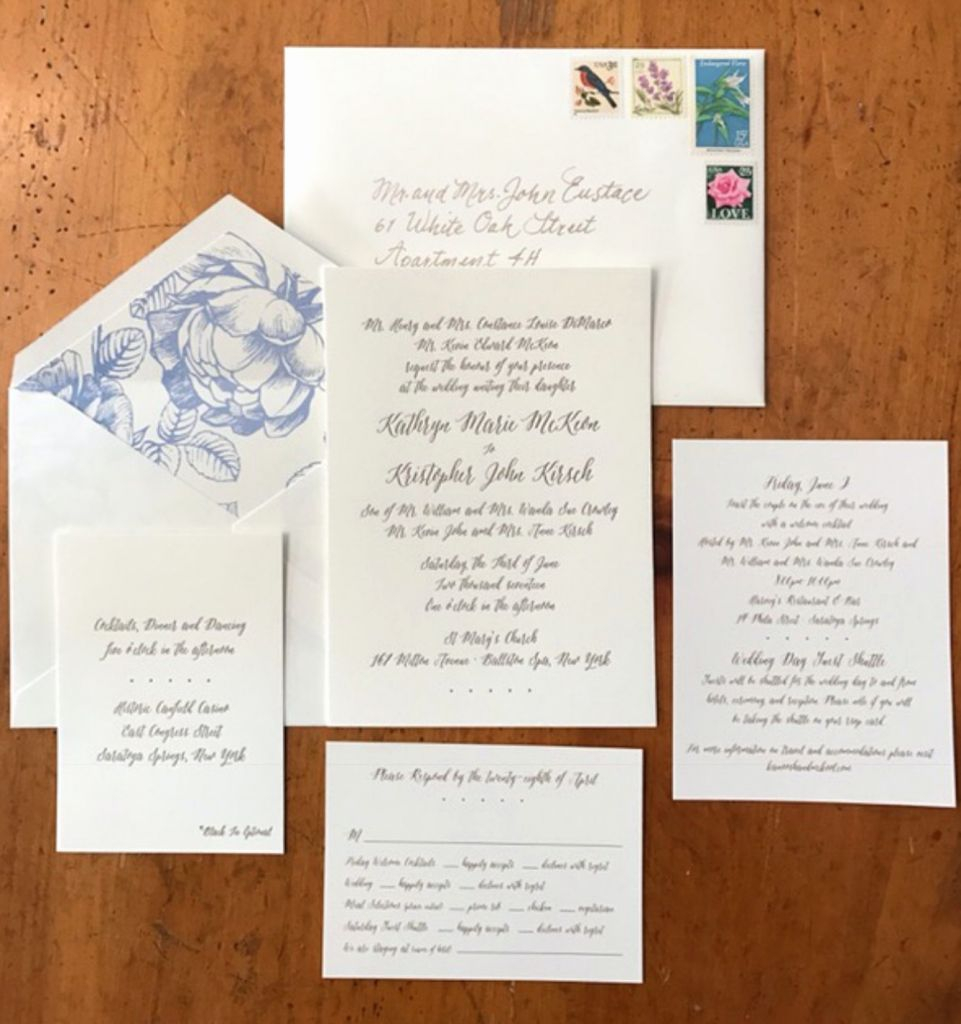 Endangered Flora
15¢
USA
LOVE
Mr. and Mrs. John Eustace
61 White Oak Street
Apartment 4H
Mr. Henry and Mrs. Constance Louise DiMarco
Mr. Kevin Edward McKeon
request the honour of your presence
at the wedding uniting their daughter
Kathryn Marie McKeon
to
Kristopher John Kirsch
Son of Mr. William and Mrs. Wanda Sue Crowley
Mr. Kevin John and Mrs. Anne Kirsch
Saturday, the Third of June
Two thousand seventeen
One o'clock in the afternoon
St Mary's Church
167 Milton Avenue · Ballston Spa, New York
Cocktails, Dinner and Dancing
five o'clock in the afternoon
Historic Canfield Casino
East Congress Street
Saratoga Springs, New York
*Black Tie Optional
Friday, June 2
the couple on the eve of their wedding
with a welcome cocktail
Hosted by Mr. Kevin John and Mrs. Anne Kirsch and
Mr. William and Mrs. Wanda Sue Crowley
Restaurant & Bar
Phila Street · Saratoga Springs
Wedding Day Guest Shuttle
Guests will be shuttled for the wedding day to and from
hotels, ceremony, and reception. Please note if you will
be taking the shuttle on your rsvp card.
For more information on travel and accommodations please visit
Please Respond by the twenty-eighth of April
M
Friday Welcome Cocktails happily accepts declines with regret
Wedding happily accepts declines with regret
Meal Selections prime rib chicken vegetarian
Saturday Guest Shuttle happily accepts declines with regret
We are staying at